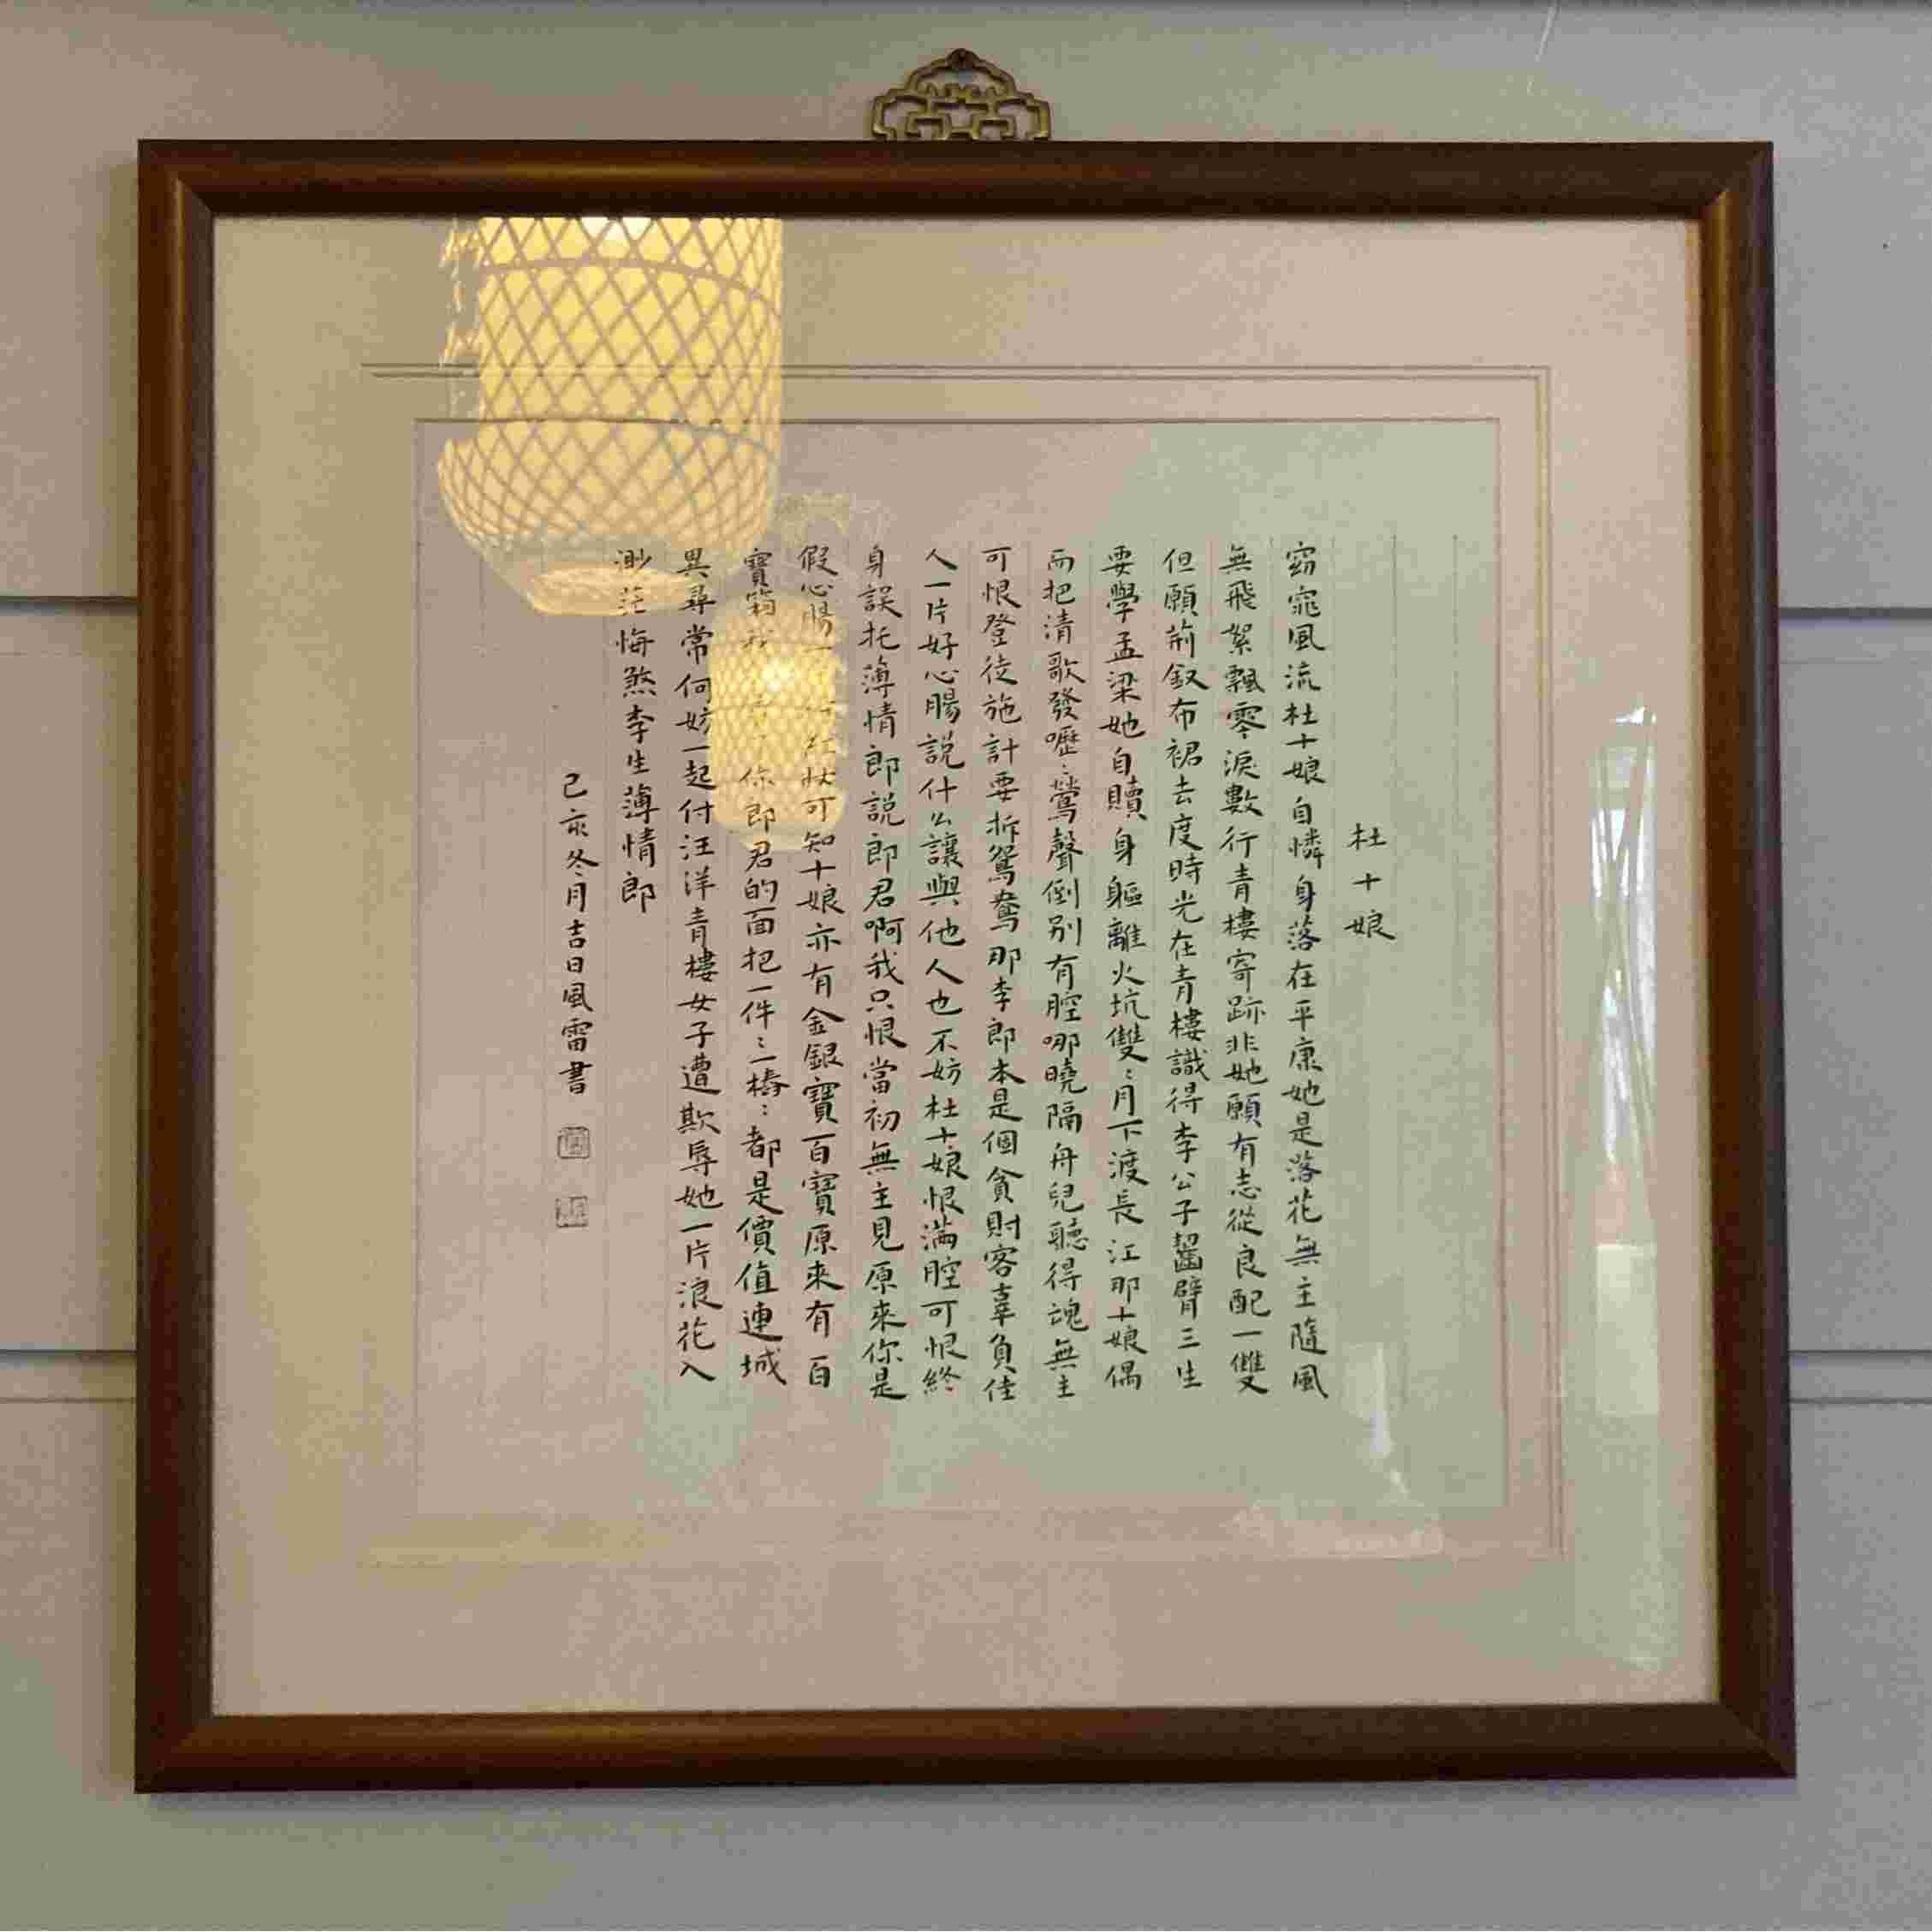 杜十娘
窈窕風流杜十娘自憐身落在平康她是落花無主隨風
無飛絮飄零淚數行青樓寄跡非她願有志從良配一雙
但願荊釵布裙去度時光在青樓識得李公子齧臂三生
要學孟梁她自贖身軀離火坑雙〻月下渡長江那十娘偶
而把清歌發嚦〻鶯聲倒別有腔哪曉隔舟兒聽得魂無主
可恨登徒施計要拆鴛鴦那李郎本是個貪財客辜負佳
人一片好心腸說什么讓與他人也不妨杜十娘恨滿腔可恨終
身誤托薄情郎說郎君啊我只恨當初無主見原來你是
假心腸一 可知十娘亦有金銀寶百寶原來有百
寶箱 你郎君的面把一件〻一樁〻都是價值連城
異尋常何妨一起付汪洋青樓女子遭欺辱她一片浪花入
渺茫悔煞李生薄情郎
己亥冬月吉日風雷書